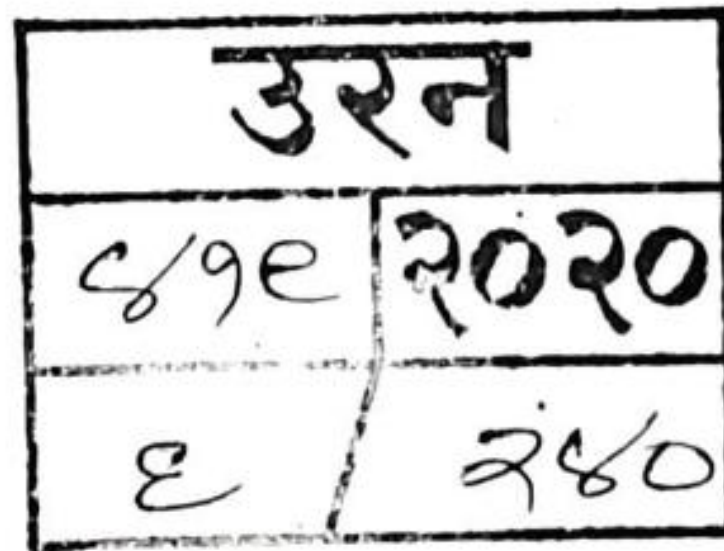 उरन
४१९ २०२०
६ २४०